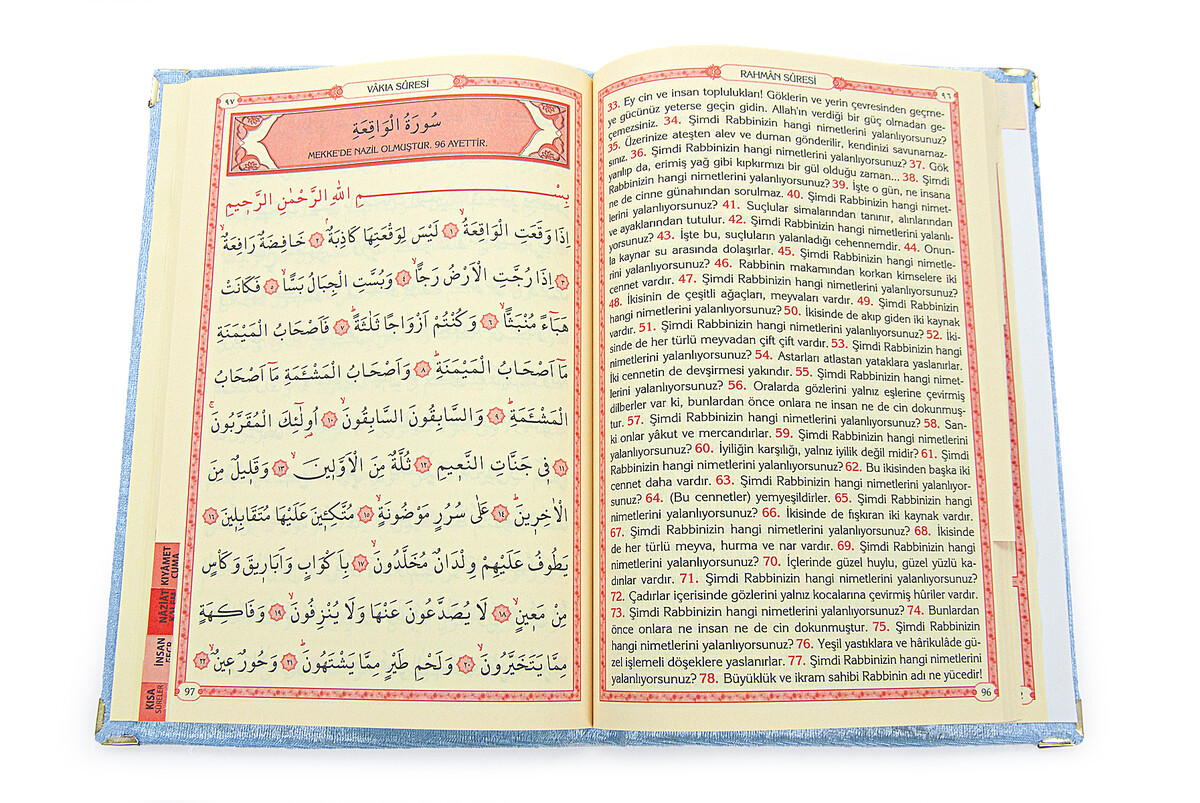 RAHMÂN SÛRESİ
٩٦
33. Ey cin ve insan toplulukları! Göklerin ve yerin çevresinden geçme-
ye gücünüz yeterse geçin gidin. Allah'ın verdiği bir güç olmadan ge-
çemezsiniz. 34. Şimdi Rabbinizin hangi nimetlerini yalanlıyorsunuz?
35. Üzerinize ateşten alev ve duman gönderilir, kendinizi savunamaz-
sınız. 36. Şimdi Rabbinizin hangi nimetlerini yalanlıyorsunuz? 37. Gök
yarılıp da, erimiş yağ gibi kıpkırmızı bir gül olduğu zaman... 38. Şimdi
Rabbinizin hangi nimetlerini yalanlıyorsunuz? 39. İşte o gün, ne insana
ne de cinne günahından sorulmaz. 40. Şimdi Rabbinizin hangi nimet-
lerini yalanlıyorsunuz? 41. Suçlular simalarından tanınır, alınlarından
ve ayaklarından tutulur. 42. Şimdi Rabbinizin hangi nimetlerini yalanlı-
yorsunuz? 43. İşte bu, suçluların yalanladığı cehennemdir. 44. Onun-
la kaynar su arasında dolaşırlar. 45. Şimdi Rabbinizin hangi nimetle-
rini yalanlıyorsunuz? 46. Rabbinin makamından korkan kimselere iki
cennet vardır. 47. Şimdi Rabbinizin hangi nimetlerini yalanlıyorsunuz?
48. İkisinin de çeşitli ağaçları, meyvaları vardır. 49. Şimdi Rabbinizin
hangi nimetlerini yalanlıyorsunuz? 50. İkisinde de akıp giden iki kaynak
vardır. 51. Şimdi Rabbinizin hangi nimetlerini yalanlıyorsunuz? 52. İki-
sinde de her türlü meyvadan çift çift vardır. 53. Şimdi Rabbinizin hangi
nimetlerini yalanlıyorsunuz? 54. Astarları atlastan yataklara yaslanırlar.
İki cennetin de devşirmesi yakındır. 55. Şimdi Rabbinizin hangi nimet-
lerini yalanlıyorsunuz? 56. Oralarda gözlerini yalnız eşlerine çevirmiş
dilberler var ki, bunlardan önce onlara ne insan ne de cin dokunmuş-
tur. 57. Şimdi Rabbinizin hangi nimetlerini yalanlıyorsunuz? 58. San-
ki onlar yâkut ve mercandırlar. 59. Şimdi Rabbinizin hangi nimetlerini
yalanlıyorsunuz? 60. İyiliğin karşılığı, yalnız iyilik değil midir? 61. Şimdi
Rabbinizin hangi nimetlerini yalanlıyorsunuz? 62. Bu ikisinden başka iki
cennet daha vardır. 63. Şimdi Rabbinizin hangi nimetlerini yalanlıyor-
sunuz? 64. (Bu cennetler) yemyeşildirler. 65. Şimdi Rabbinizin hangi
nimetlerini yalanlıyorsunuz? 66. İkisinde de fışkıran iki kaynak vardır.
67. Şimdi Rabbinizin hangi nimetlerini yalanlıyorsunuz? 68. İkisinde
de her türlü meyva, hurma ve nar vardır. 69. Şimdi Rabbinizin hangi
nimetlerini yalanlıyorsunuz? 70. İçlerinde güzel huylu, güzel yüzlü ka-
dınlar vardır. 71. Şimdi Rabbinizin hangi nimetlerini yalanlıyorsunuz?
72. Çadırlar içerisinde gözlerini yalnız kocalarına çevirmiş hûriler vardır.
73. Şimdi Rabbinizin hangi nimetlerini yalanlıyorsunuz? 74. Bunlardan
önce onlara ne insan ne de cin dokunmuştur. 75. Şimdi Rabbinizin
hangi nimetlerini yalanlıyorsunuz? 76. Yeşil yastıklara ve hârikulâde gü-
zel işlemeli döşeklere yaslanırlar. 77. Şimdi Rabbinizin hangi nimetlerini
yalanlıyorsunuz? 78. Büyüklük ve ikram sahibi Rabbinin adı ne yücedir!
96
VÂKIA SÛRESİ
٩٧
سُورَةُ الْوَاقِعَةِ
MEKKE'DE NAZİL OLMUŞTUR. 96 AYETTİR.
بِسْمِ اللّٰهِ الرَّحْمٰنِ الرَّح۪يمِ
اِذَا وَقَعَتِ الْوَاقِعَةُۙ ١ لَيْسَ لِوَقْعَتِهَا كَاذِبَةٌۢ ٢ خَافِضَةٌ رَافِعَةٌۙ
٣ اِذَا رُجَّتِ الْاَرْضُ رَجًّاۙ ٤ وَبُسَّتِ الْجِبَالُ بَسًّاۙ ٥ فَكَانَتْ
هَبَٓاءً مُنْبَثًّاۙ ٦ وَكُنْتُمْ اَزْوَاجًا ثَلٰثَةًۜ ٧ فَاَصْحَابُ الْمَيْمَنَةِ
مَٓا اَصْحَابُ الْمَيْمَنَةِۜ ٨ وَاَصْحَابُ الْمَشْـَٔمَةِ مَٓا اَصْحَابُ
الْمَشْـَٔمَةِۜ ٩ وَالسَّابِقُونَ السَّابِقُونَۙ ١٠ اُو۬لٰٓئِكَ الْمُقَرَّبُونَۚ
١١ ف۪ي جَنَّاتِ النَّع۪يمِ ١٢ ثُلَّةٌ مِنَ الْاَوَّل۪ينَۙ ١٣ وَقَل۪يلٌ مِنَ
الْاٰخِر۪ينَۜ ١٤ عَلٰى سُرُرٍ مَوْضُونَةٍۙ ١٥ مُتَّكِـ۪ٔينَ عَلَيْهَا مُتَقَابِل۪ينَ ١٦
يَطُوفُ عَلَيْهِمْ وِلْدَانٌ مُخَلَّدُونَۙ ١٧ بِاَكْوَابٍ وَاَبَار۪يقَ وَكَأْسٍ
مِنْ مَع۪ينٍۙ ١٨ لَا يُصَدَّعُونَ عَنْهَا وَلَا يُنْزِفُونَۙ ١٩ وَفَاكِهَةٍ
مِمَّا يَتَخَيَّرُونَۙ ٢٠ وَلَحْمِ طَيْرٍ مِمَّا يَشْتَهُونَۜ ٢١ وَحُورٌ ع۪ينٌۙ ٢٢
97
KIYÂMET
CUMA
NAZİAT
İNSAN
KISA
SÛRELER